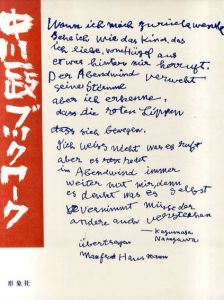 中川一政ブックワーク
Wenn ich mich zurückwende
Sehe ich wie das Kind, das
ich liebe, vom Hügel aus
etwas hinter mir her ruft.
Der Abendwind verweht
seine Stimme
aber ich erkenne,
dass die roten Lippen
sich bewegen.
Ich weiss nicht was es ruft
aber es
im Abendwind immer
weiter
es denkt was es selbst
vernimmt müsse der
andere auch verstehen
— Kazumasa
Nakagawa
übertragen
Manfred Hausmann
形象社